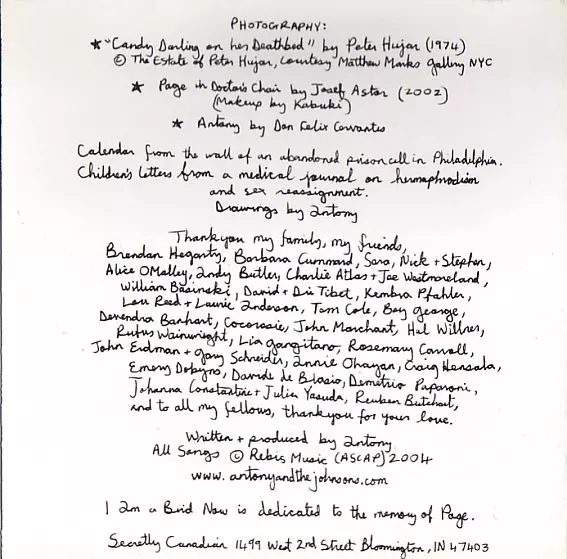 PHOTOGRAPHY:
★ "Candy Darling on her Deathbed" by Peter Hujar (1974)
© The Estate of Peter Hujar, courtesy Matthew Marks gallery NYC
★ Page in Doctor's Chair by Josef Astor (2002)
(Makeup by Kabuki)
★ Antony by Don Felix Cervantes
Calendar from the wall of an abandoned prison cell in Philadelphia.
Children's letters from a medical journal on hermaphrodism
and sex reassignment.
Drawings by Antony
Thankyou my family, my friends,
Brendan Hegarty, Barbara Cummard, Sara, Nick + Stephen,
Alice OMalley, Andy Butler, Charlie Atlas + Joe Westmoreland,
William Basinski, David + Dix Tibet, Kembra Pfahler,
Lou Reed + Laurie Anderson, Tom Cole, Boy George,
Devendra Banhart, Cocorosie, John Marchant, Hal Willner,
Rufus Wainwright, Lia Gangitano, Rosemary Carroll,
John Erdman + Gary Schneider, Annie Ohayon, Craig Hensala,
Emery Dobyns, Davide de Blasio, Demetrio Paparoni,
Johanna Constantine + Julia Yasuda, Reuben Butchart,
and to all my fellows, thankyou for your love.
Written + produced by Antony
All Songs © Rebis Music (ASCAP) 2004
www.antonyandthejohnsons.com
I Am a Bird Now is dedicated to the memory of Page.
Secretly Canadian 1499 West 2nd Street Bloomington, IN 47403